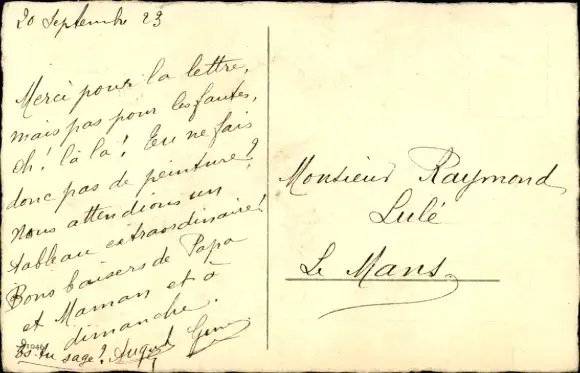 20 Septembre 23
Merci pour la lettre,
mais pas pour les fautes,
oh! là là! Tu ne fais
donc pas de peinture?
nous attendions un
tableau extraordinaire!
Bons baisers de Papa
et Maman et à
dimanche.
Es-tu sage?
Monsieur Raymond
Lulé
Le Mans